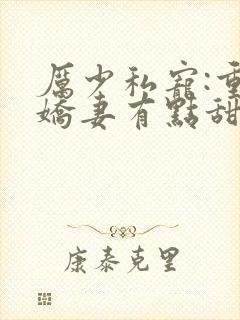 厲少私寵:重
嬌妻有點甜
康泰克里